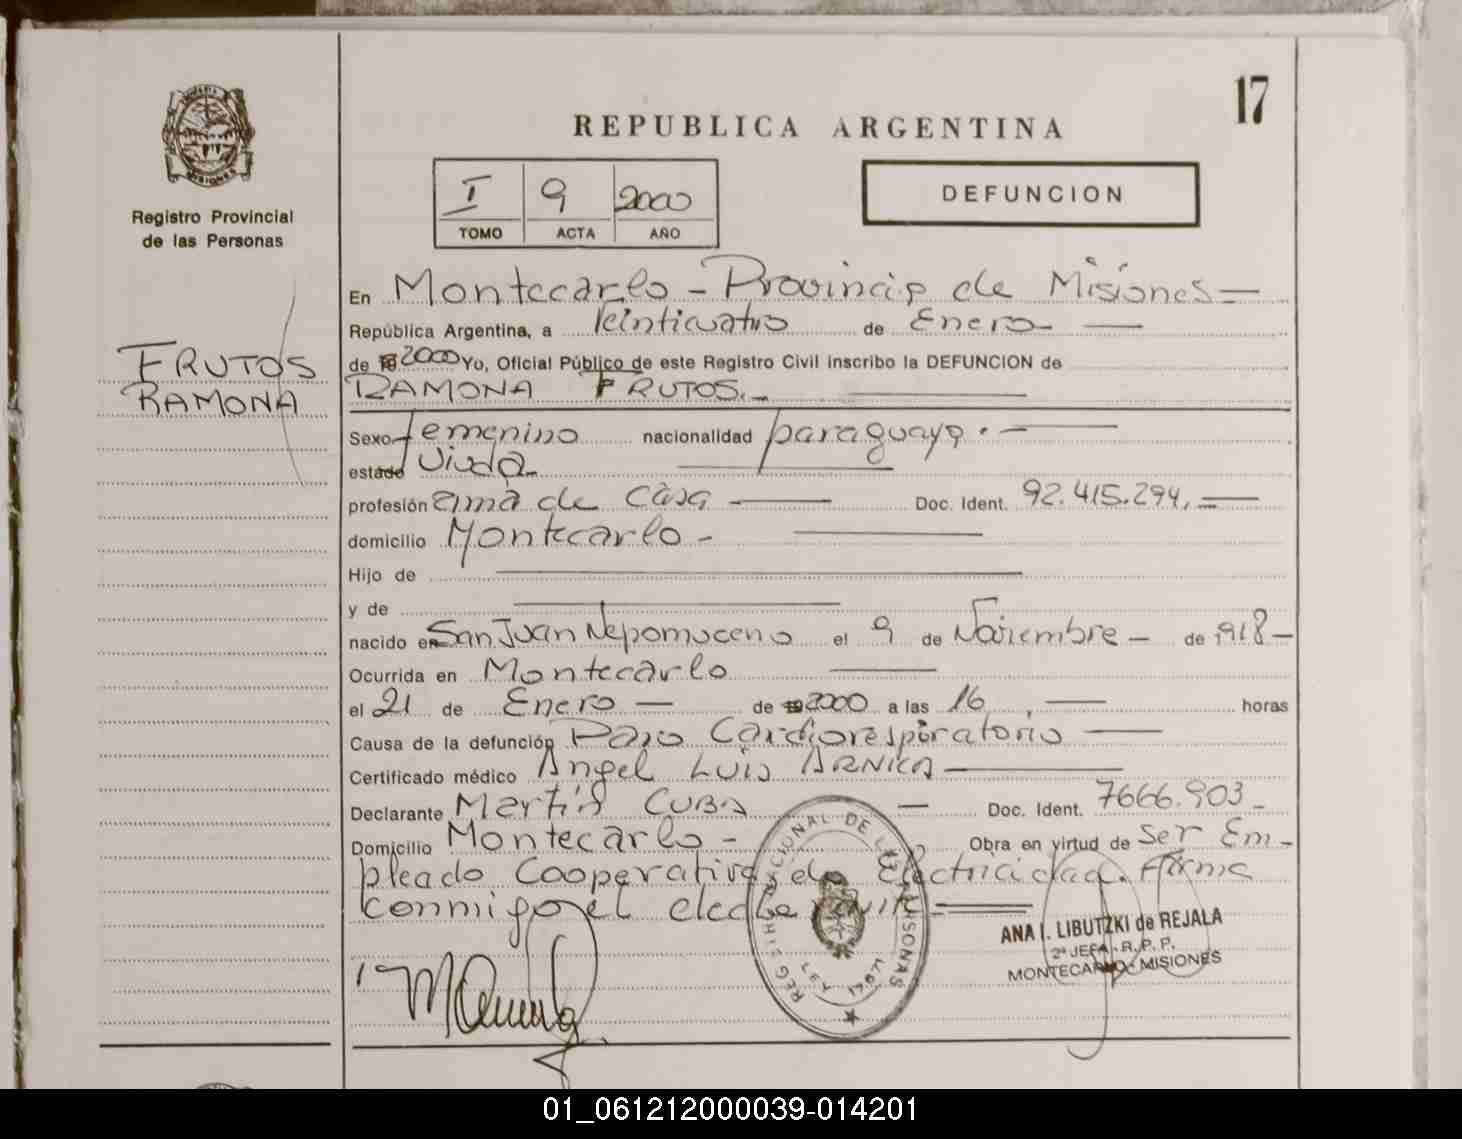 17
REPUBLICA ARGENTINA
MISIONES
Registro Provincial
de las Personas
I 9 2000
TOMO ACTA AÑO
DEFUNCION
FRUTOS
RAMONA
En Montecarlo - Provincia de Misiones —
República Argentina, a Veinticuatro de Enero —
de 2000 Yo, Oficial Público de este Registro Civil inscribo la DEFUNCION de
RAMONA FRUTOS. —
Sexo femenino nacionalidad paraguaya. —
estado Viuda —
profesión ama de casa — Doc. Ident. 92.415.294, —
domicilio Montecarlo - —
Hijo de —
y de —
nacido en San Juan Nepomuceno el 9 de Noviembre — de 1918 —
Ocurrida en Montecarlo —
el 21 de Enero — de 2000 a las 16, — horas
Causa de la defunción Paro Cardiorespiratorio —
Certificado médico Angel Luis ARNICA —
Declarante Martín CUBA — Doc. Ident. 7666.903 -
Domicilio Montecarlo - Obra en virtud de Ser Em-
pleado Cooperativa de Electricidad. Firma
conmigo el
ANA I. LIBUTZKI de REJALA
2ª JEFA - R. P. P.
MONTECARLO - MISIONES
01_061212000039-014201